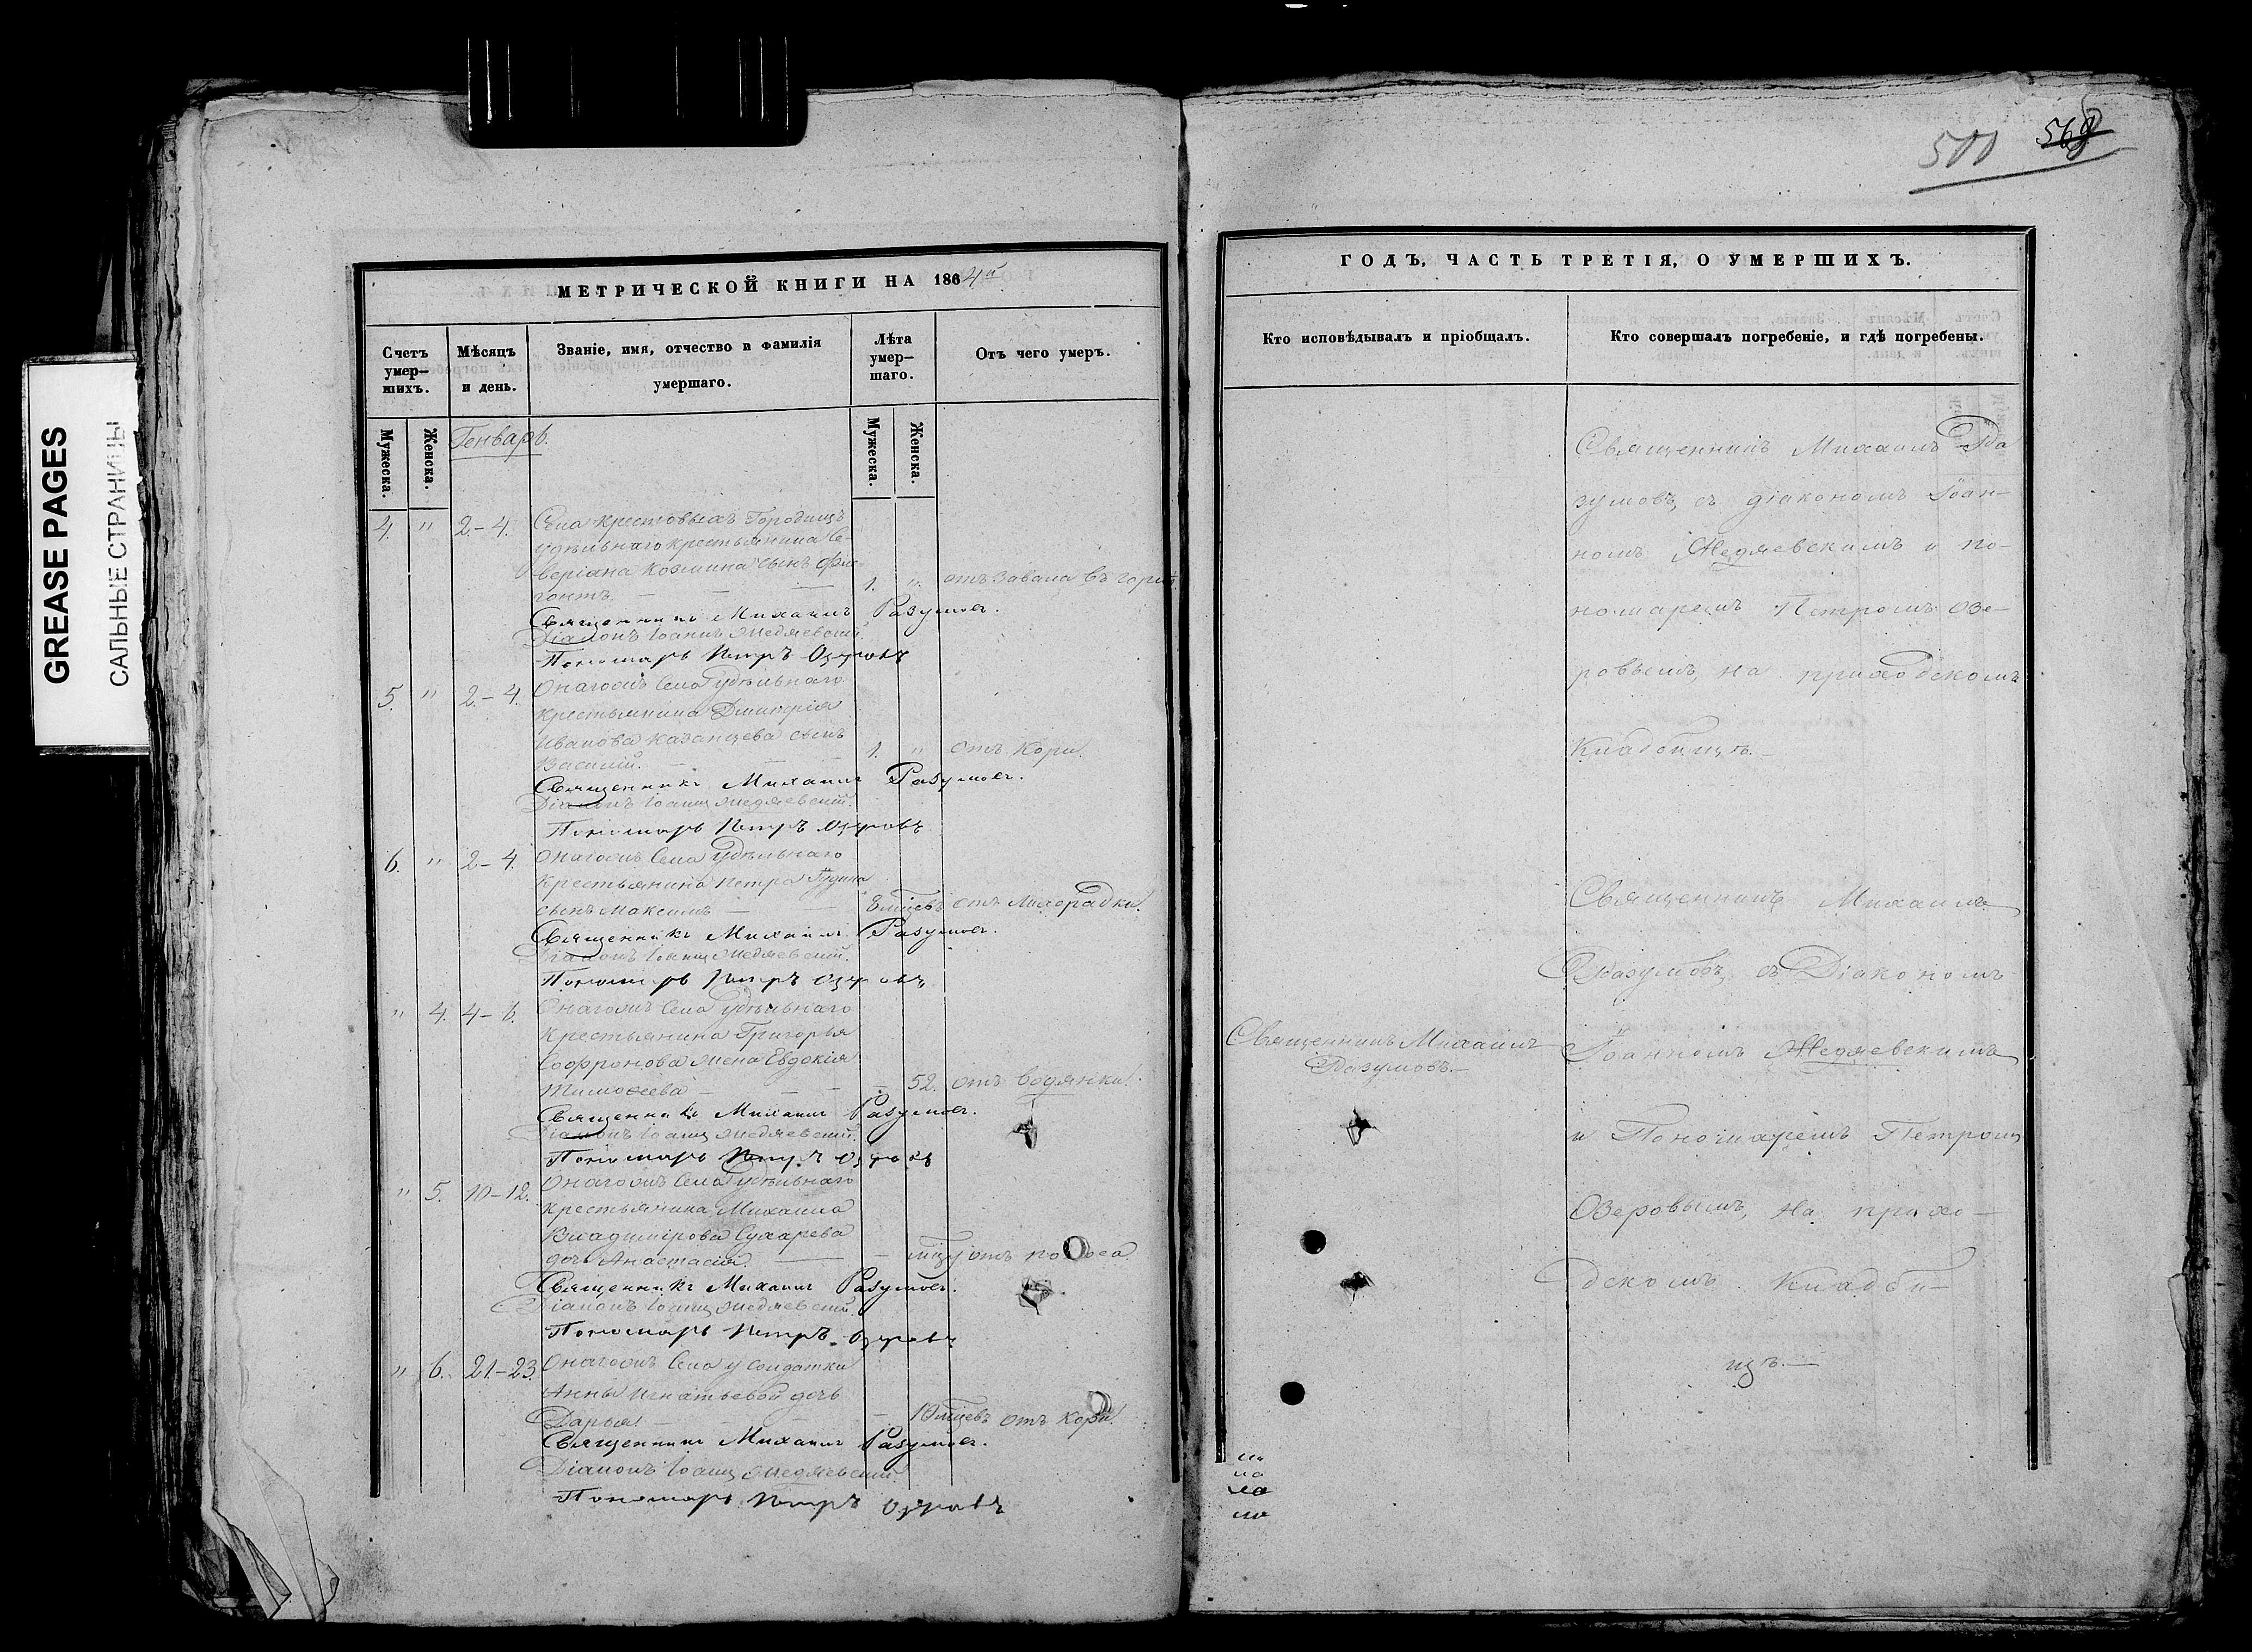 GREASE PAGES
САЛЬНЫЕ СТРАНИЦЫ
МЕТРИЧЕСКОЙ КНИГИ НА 1864й
Счетъ умер-шихъ.
Мѣсяцъ и день.
Званіе, имя, отчество и фамилія умершаго.
Лѣта умер-шаго.
Отъ чего умеръ.
Мужеска.
Женска.
Генварь.
Мужеска.
Женска.
4. " 2-4. Села Крестовыхъ Городищъ
удѣльнаго крестьянина Се-
веріана Козмина сынъ Фло-
гонтъ. — — — 1. " отъ завала въ горлѣ
Священникъ Михаилъ Разумовъ.
Діаконъ Іоаннъ Медяевскій.
Пономарь Петръ Озеровъ
5. " 2-4. Онагожъ Села удѣльнаго
крестьянина Димитрія
Иванова Казанцева сынъ
Василій. — — — 1. " отъ кори.
Священникъ Михаилъ Разумовъ.
Діаконъ Іоаннъ Медяевскій.
Пономарь Петръ Озеровъ
6. " 2-4. Онагожъ Села удѣльнаго
крестьянина Петра
сынъ Максимъ — — 8 мцевъ отъ лихорадки.
Священникъ Михаилъ Разумовъ.
Діаконъ Іоаннъ Медяевскій.
Пономарь Петръ Озеровъ
" 4. 4-6. Онагожъ Села удѣльнаго
крестьянина Григорья
Софронова жена Евдокія
Тимоѳеева — — — 52. отъ водянки.
Священникъ Михаилъ Разумовъ.
Діаконъ Іоаннъ Медяевскій.
Пономарь Петръ Озеровъ
" 5. 10-12. Онагожъ Села удѣльнаго
крестьянина Михаила
Владимірова Сухарева
дочь Анастасія. — — отъ поноса
Священникъ Михаилъ Разумовъ.
Діаконъ Іоаннъ Медяевскій.
Пономарь Петръ Озеровъ
" 6. 21-23. Онагожъ Села у солдатки
Анны Игнатьевой дочь
Дарья — — — 10 мцевъ отъ кори.
Священникъ Михаилъ Разумовъ.
Діаконъ Іоаннъ Медяевскій.
Пономарь Петръ Озеровъ
569
ГОДЪ, ЧАСТЬ ТРЕТІЯ, О УМЕРШИХЪ.
Кто исповѣдывалъ и пріобщалъ.
Кто совершалъ погребеніе, и гдѣ погребены.
Священникъ Михаилъ Ра
зумовъ, съ діакономъ Іоан-
номъ Медяевскимъ и по-
номаремъ Петромъ Озе-
ровымъ, на приходскомъ
кладбищѣ. —
Священникъ Михаилъ
Разумовъ, съ Діакономъ
Священникъ Михаилъ
Разумовъ. —
Іоанномъ Медяевскимъ
и Пономаремъ Петромъ
Озеровымъ, на прихо-
дскомъ кладби-
щѣ. —